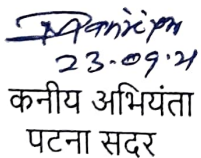 23.09.21
कनीय अभियंता
पटना सदर